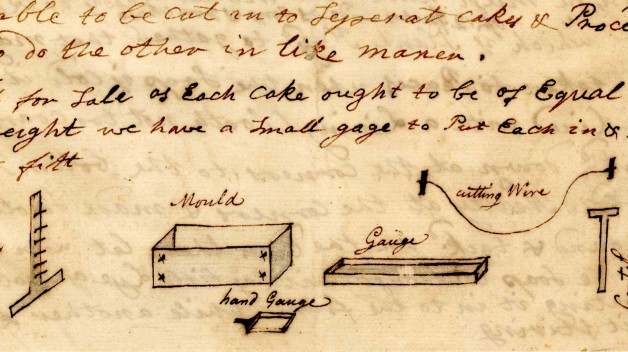 able to be cut in to Seperat cakes & Proce
do the other in like maner.
for Sale as Each Cake ought to be of Equal
eight we have a Small gage to Put Each in &
fitt
Mould
cutting Wire
Gauge
hand Gauge